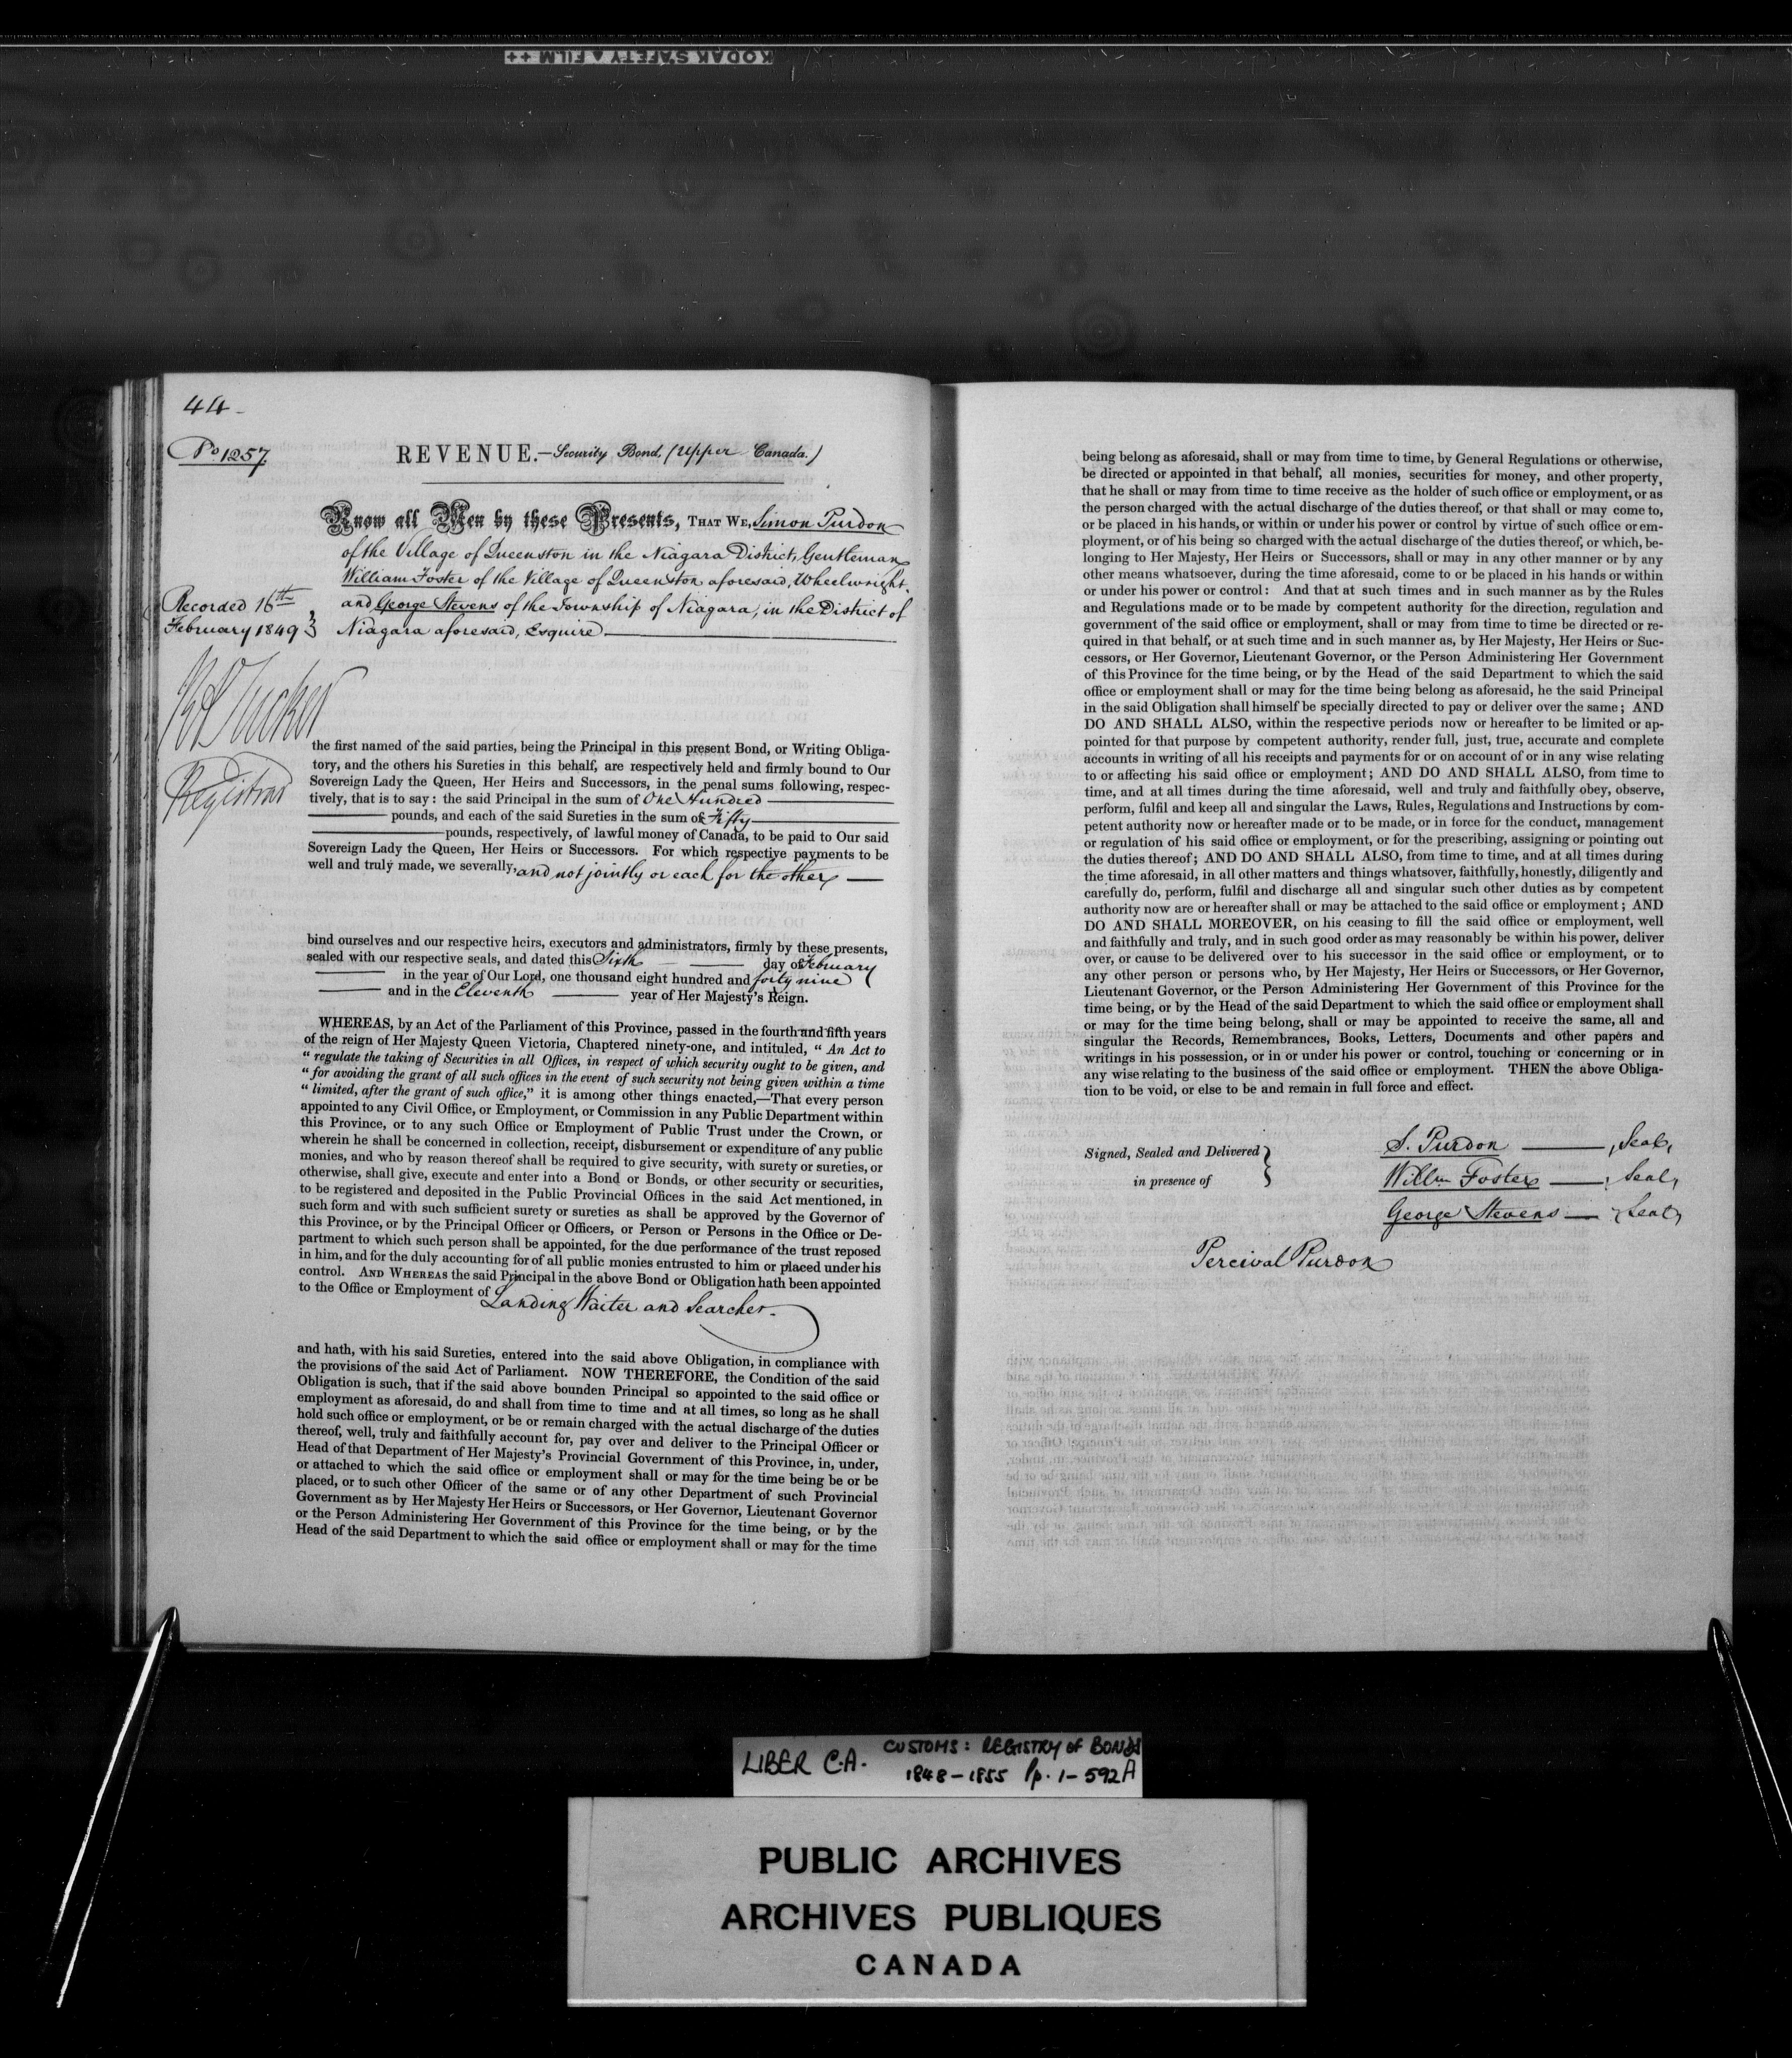 KODAK SAFETY ▲ FILM ++
44-
No 1257.
REVENUE.—Security Bond, (Upper Canada.)
Know all Men by these Presents, THAT WE, Simon Purdon
of the Village of Queenston in the Niagara District, Gentleman
William Foster of the Village of Queenston aforesaid, Wheelwright,
and George Stevens of the Township of Niagara, in the District of
Niagara aforesaid, Esquire
Recorded 16th
February 1849
Tucker
Registrar
the first named of the said parties, being the Principal in this present Bond, or Writing Obliga-
tory, and the others his Sureties in this behalf, are respectively held and firmly bound to Our
Sovereign Lady the Queen, Her Heirs and Successors, in the penal sums following, respec-
tively, that is to say: the said Principal in the sum of One Hundred
pounds, and each of the said Sureties in the sum of Fifty
pounds, respectively, of lawful money of Canada, to be paid to Our said
Sovereign Lady the Queen, Her Heirs or Successors. For which respective payments to be
well and truly made, we severally, and not jointly or each for the other
bind ourselves and our respective heirs, executors and administrators, firmly by these presents,
sealed with our respective seals, and dated this Sixth day of February
in the year of Our Lord, one thousand eight hundred and forty nine
and in the Eleventh year of Her Majesty's Reign.
WHEREAS, by an Act of the Parliament of this Province, passed in the fourth and fifth years
of the reign of Her Majesty Queen Victoria, Chaptered ninety-one, and intituled, " An Act to
" regulate the taking of Securities in all Offices, in respect of which security ought to be given, and
" for avoiding the grant of all such offices in the event of such security not being given within a time
" limited, after the grant of such office," it is among other things enacted,—That every person
appointed to any Civil Office, or Employment, or Commission in any Public Department within
this Province, or to any such Office or Employment of Public Trust under the Crown, or
wherein he shall be concerned in collection, receipt, disbursement or expenditure of any public
monies, and who by reason thereof shall be required to give security, with surety or sureties, or
otherwise, shall give, execute and enter into a Bond or Bonds, or other security or securities,
to be registered and deposited in the Public Provincial Offices in the said Act mentioned, in
such form and with such sufficient surety or sureties as shall be approved by the Governor of
this Province, or by the Principal Officer or Officers, or Person or Persons in the Office or De-
partment to which such person shall be appointed, for the due performance of the trust reposed
in him, and for the duly accounting for of all public monies entrusted to him or placed under his
control. AND WHEREAS the said Principal in the above Bond or Obligation hath been appointed
to the Office or Employment of Landing Waiter and Searcher.
and hath, with his said Sureties, entered into the said above Obligation, in compliance with
the provisions of the said Act of Parliament. NOW THEREFORE, the Condition of the said
Obligation is such, that if the said above bounden Principal so appointed to the said office or
employment as aforesaid, do and shall from time to time and at all times, so long as he shall
hold such office or employment, or be or remain charged with the actual discharge of the duties
thereof, well, truly and faithfully account for, pay over and deliver to the Principal Officer or
Head of that Department of Her Majesty's Provincial Government of this Province, in, under,
or attached to which the said office or employment shall or may for the time being be or be
placed, or to such other Officer of the same or of any other Department of such Provincial
Government as by Her Majesty Her Heirs or Successors, or Her Governor, Lieutenant Governor
or the Person Administering Her Government of this Province for the time being, or by the
Head of the said Department to which the said office or employment shall or may for the time
being belong as aforesaid, shall or may from time to time, by General Regulations or otherwise,
be directed or appointed in that behalf, all monies, securities for money, and other property,
that he shall or may from time to time receive as the holder of such office or employment, or as
the person charged with the actual discharge of the duties thereof, or that shall or may come to,
or be placed in his hands, or within or under his power or control by virtue of such office or em-
ployment, or of his being so charged with the actual discharge of the duties thereof, or which, be-
longing to Her Majesty, Her Heirs or Successors, shall or may in any other manner or by any
other means whatsoever, during the time aforesaid, come to or be placed in his hands or within
or under his power or control: And that at such times and in such manner as by the Rules
and Regulations made or to be made by competent authority for the direction, regulation and
government of the said office or employment, shall or may from time to time be directed or re-
quired in that behalf, or at such time and in such manner as, by Her Majesty, Her Heirs or Suc-
cessors, or Her Governor, Lieutenant Governor, or the Person Administering Her Government
of this Province for the time being, or by the Head of the said Department to which the said
office or employment shall or may for the time being belong as aforesaid, he the said Principal
in the said Obligation shall himself be specially directed to pay or deliver over the same; AND
DO AND SHALL ALSO, within the respective periods now or hereafter to be limited or ap-
pointed for that purpose by competent authority, render full, just, true, accurate and complete
accounts in writing of all his receipts and payments for or on account of or in any wise relating
to or affecting his said office or employment; AND DO AND SHALL ALSO, from time to
time, and at all times during the time aforesaid, well and truly and faithfully obey, observe,
perform, fulfil and keep all and singular the Laws, Rules, Regulations and Instructions by com-
petent authority now or hereafter made or to be made, or in force for the conduct, management
or regulation of his said office or employment, or for the prescribing, assigning or pointing out
the duties thereof; AND DO AND SHALL ALSO, from time to time, and at all times during
the time aforesaid, in all other matters and things whatsover, faithfully, honestly, diligently and
carefully do, perform, fulfil and discharge all and singular such other duties as by competent
authority now are or hereafter shall or may be attached to the said office or employment; AND
DO AND SHALL MOREOVER, on his ceasing to fill the said office or employment, well
and faithfully and truly, and in such good order as may reasonably be within his power, deliver
over, or cause to be delivered over to his successor in the said office or employment, or to
any other person or persons who, by Her Majesty, Her Heirs or Successors, or Her Governor,
Lieutenant Governor, or the Person Administering Her Government of this Province for the
time being, or by the Head of the said Department to which the said office or employment shall
or may for the time being belong, shall or may be appointed to receive the same, all and
singular the Records, Remembrances, Books, Letters, Documents and other papers and
writings in his possession, or in or under his power or control, touching or concerning or in
any wise relating to the business of the said office or employment. THEN the above Obliga-
tion to be void, or else to be and remain in full force and effect.
Signed, Sealed and Delivered
in presence of
S. Purdon Seal,
Willm Foster Seal,
George Stevens Seal,
Percival Purdon
LIBER C.A. CUSTOMS: REGISTRY OF BONDS
1848-1855 pp. 1-592A
PUBLIC ARCHIVES
ARCHIVES PUBLIQUES
CANADA